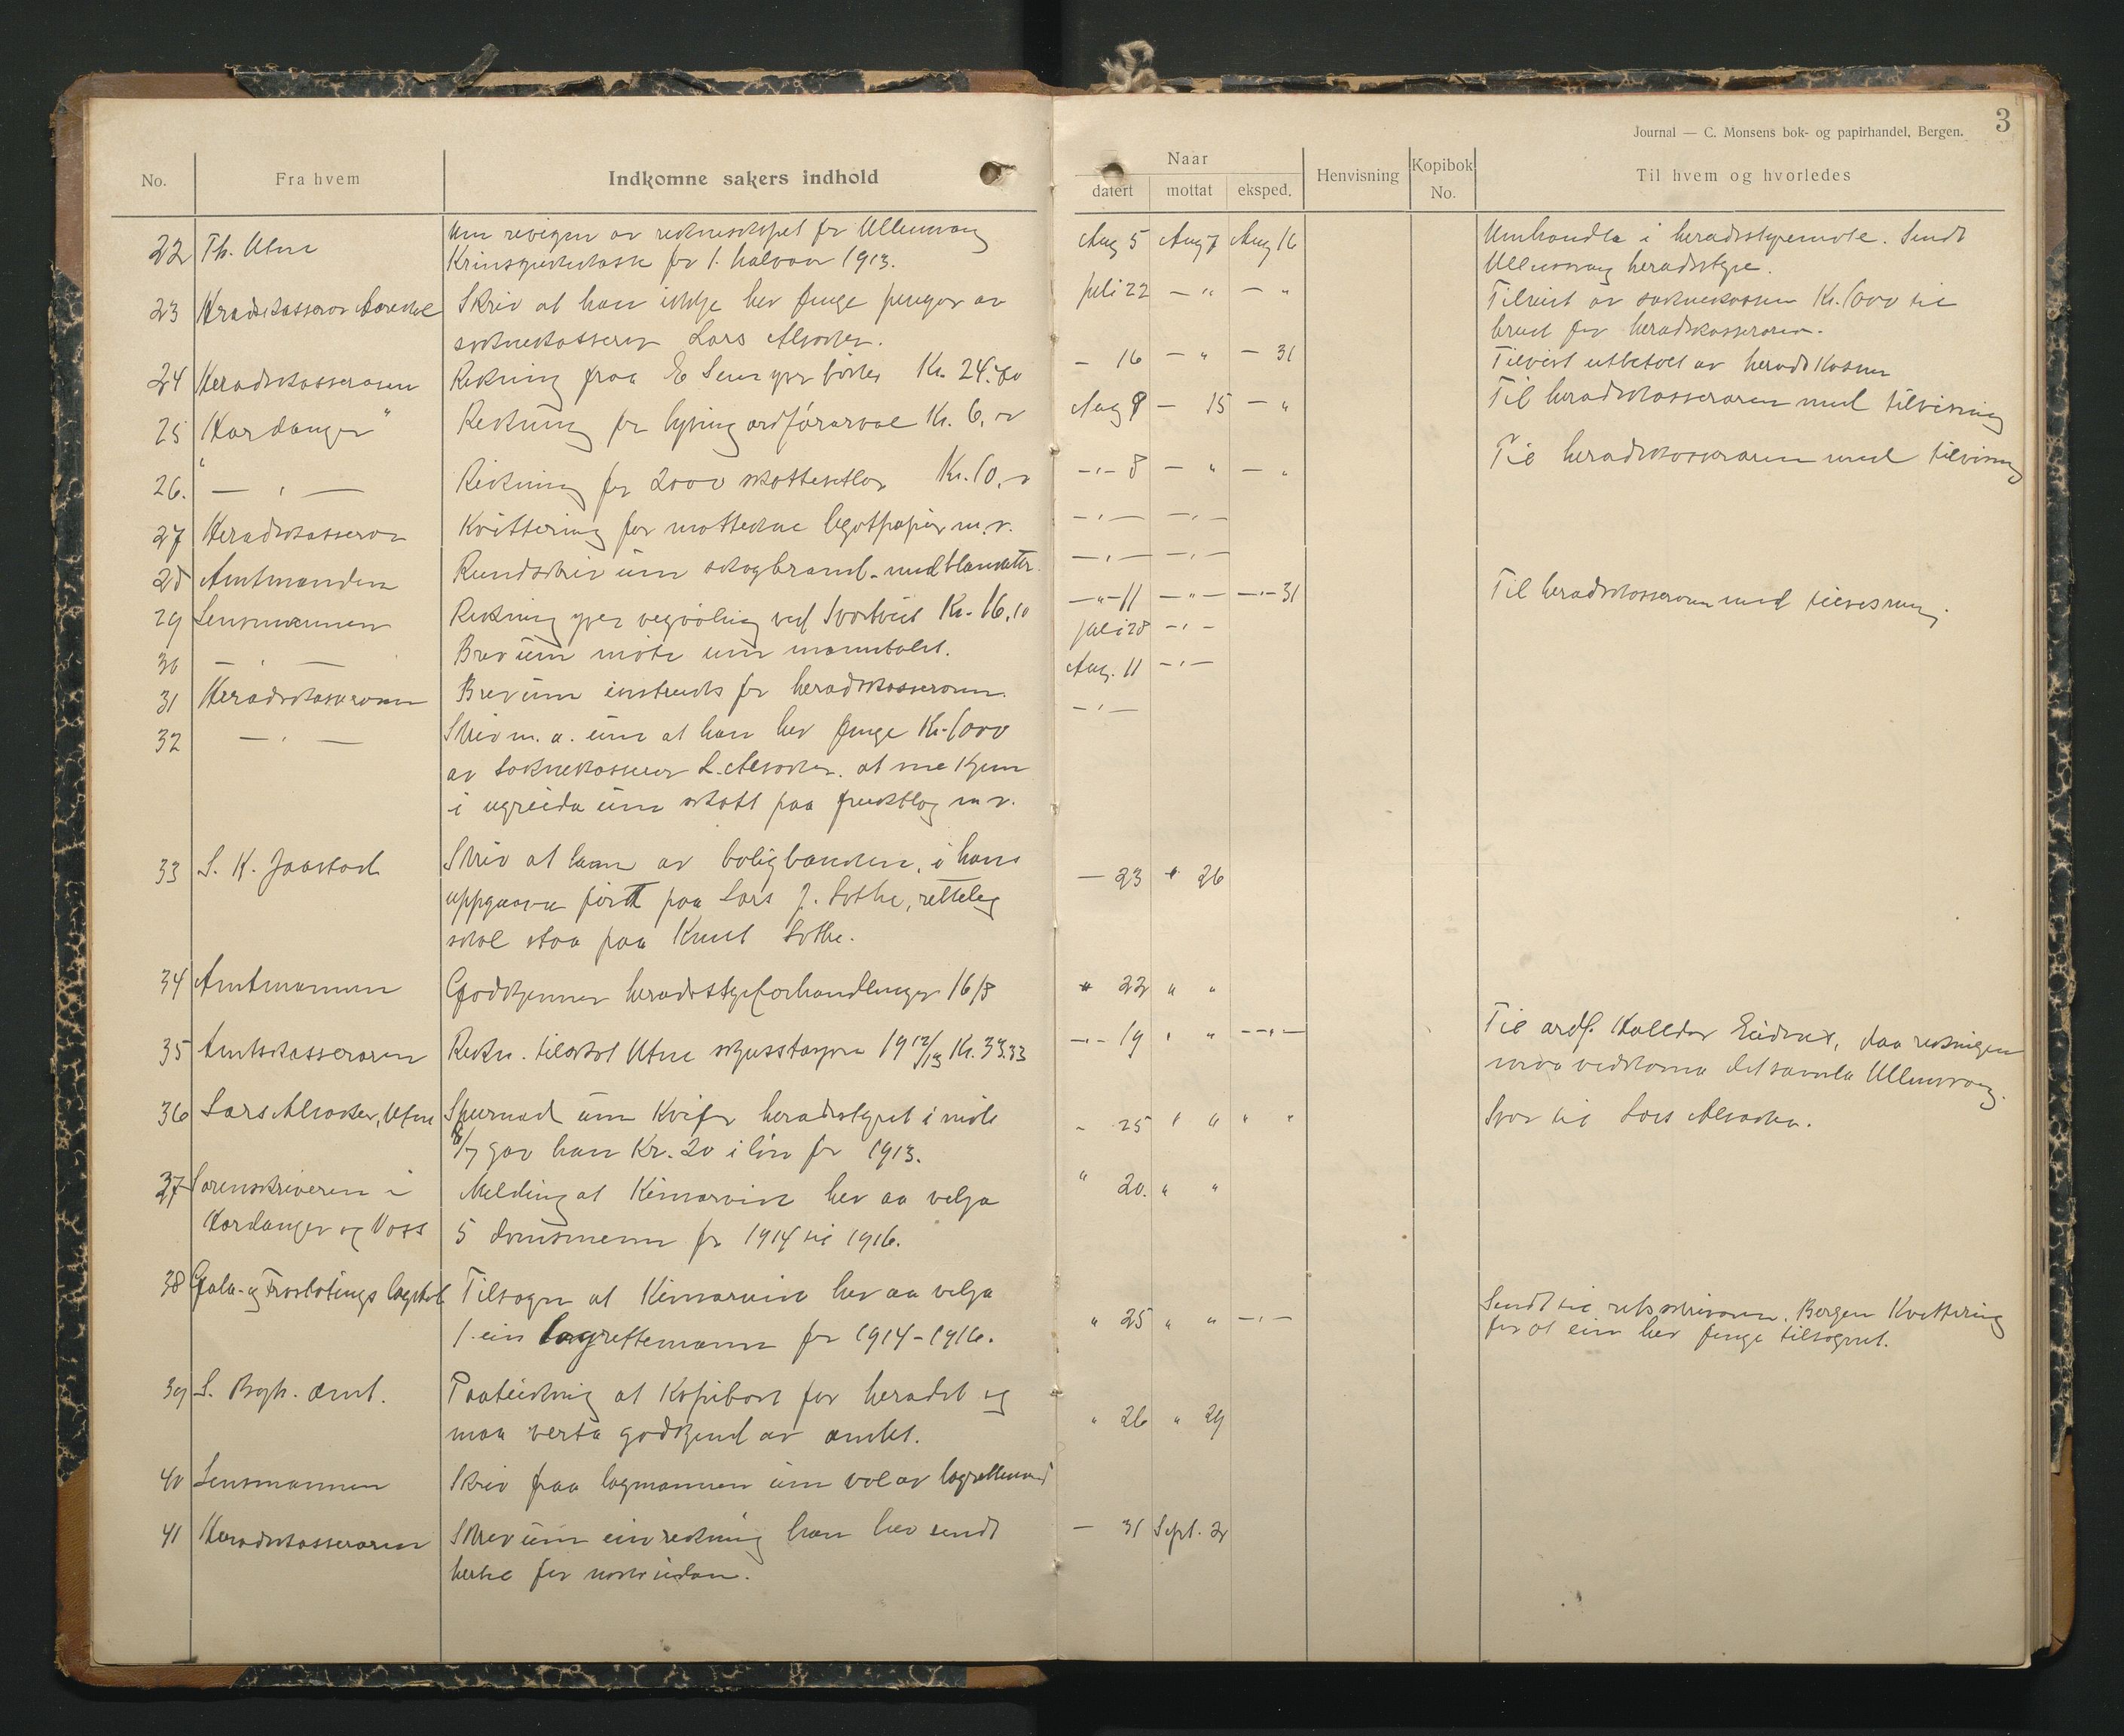 Journal — C. Monsens bok- og papirhandel, Bergen. 3
No. Fra hvem Indkomne sakers indhold Naar datert mottat eksped. Henvisning Kopibok No. Til hvem og hvorledes
22 Th. Utne Um av rekneskapet for Ullensvang Aug 5 Aug 7 Aug 16 Umhandla i heradsstyremøte. Sendt
for 1. halvaar 1913. Ullensvang heradstyre.
23 Heradskasserar Skriv at han ikkje hev fenge pengar av juli 22 — " — " Tilvist av soknekassen Kr. 1000 til
soknekasserer Lars Alsaker. bruk for heradskasseraren.
24 Heradskasseraren Rekning fraa Kr. 24. — 16 — " — 31 Tilvist utbetalt av heradskassen
25 "Hardanger" Rekning for lysing ordførarval Kr. 6, Aug 9 — 15 — " Til heradskasseraren med tilvising
26. — " — Rekning for 2000 skattesetlar Kr. 10, — " — 8 — " — " Til heradskasseraren med tilvising
27 Heradskasseraren Kvittering for mottekne legatpapir m. v. — " — — " —
28 Amtmanden Rundskriv um skogbrand — " — — " —
29 Lensmannen Rekning yver vegvøling ved Kr. 16,10 — " — 11 — " — — " — 31 Til heradskasseraren med tilvisning.
30 — " — Brev um møte um manntalet. juli 28 — " —
31 Heradskasseraren Brev um instruks for heradskasseraren. Aug. 11 — " —
32 — " — Skriv m. a. um at han hev fenge Kr. 1000 — " —
av soknekasserer L. Alsaker. at me kjem
i ugreida um skatt paa fruktlag m. v.
33 S. K. Jaastad Skriv at han av boligbanken, i hans — 23 " 26
uppgaava ført paa Lars J. Lothe, retteleg
skal staa paa Knut Lothe.
34 Amtmannen Godkjenner heradstyreforhandlinger 16/8 " 22 " "
35 Amtskasseraren Rekn. tilskot Utne skysstasjon 1912/13 Kr. 33.33 — " — 19 " " — " — Til ordf. Halldor Eidnes, daa rekningen
maa vedkoma det samla Ullensvang.
36 Lars Alsaker, Utne Spurnad um kvifor heradstyret i møte " 25 " " " " Svar til Lars Alsaker.
/7 gav han Kr. 20 i løn for 1913.
37 Sorenskriveren i Melding at Kinsarvik hev aa velja " 20. " "
Hardanger og Voss 5 domsmenn for 1914 til 1916.
38 Gula- og Frostatings lagstol Tilsogn at Kinsarvik hev aa velja
1 ein lagrettemann for 1914-1916. " 25 " " — " — Sendt til , Bergen Kvittering
for at ein hev fenge tilsognet.
39 S. Bgh. amt. Paateikning at Kopibok for heradet og " 26 " 29
maa verta godkjend av amtet.
40 Lensmannen Skriv fraa lagmannen um val av lagrettemend
41 Heradskasseraren Skrev um ein rekning han hev sendt — 31 Sept. 2